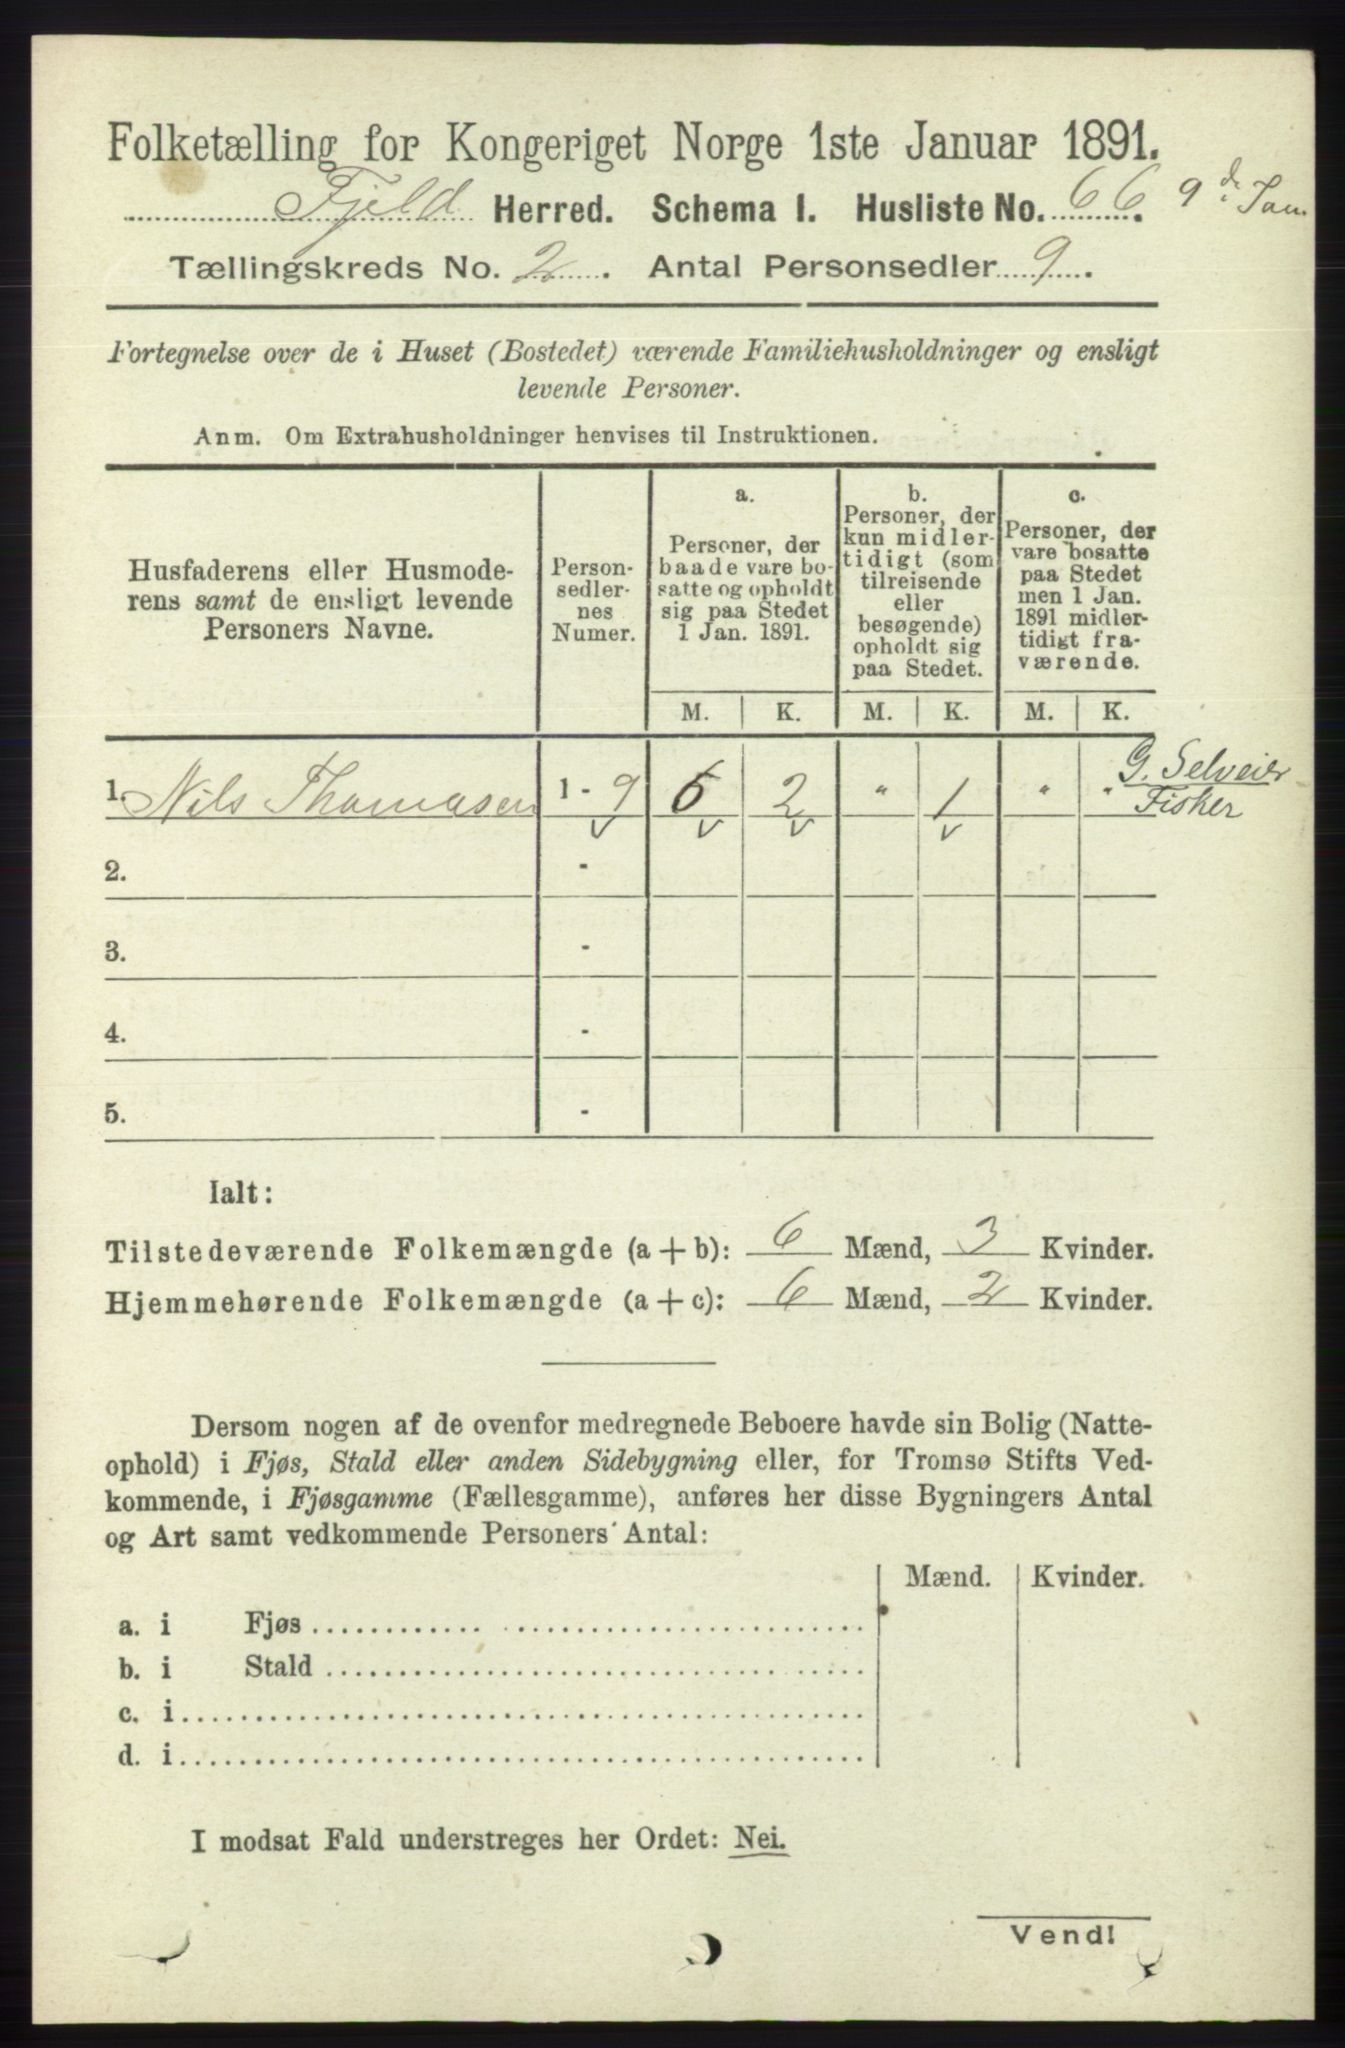 Folketælling for Kongeriget Norge 1ste Januar 1891.
Fjeld Herred. Schema I. Husliste No. 66. 9de Jan.
Tællingskreds No. 2. Antal Personsedler 9.
Fortegnelse over de i Huset (Bostedet) værende Familiehusholdninger og ensligt
levende Personer.
Anm. Om Extrahusholdninger henvises til Instruktionen.
Husfaderens eller Husmode-
rens samt de ensligt levende
Personers Navne.
Person-
sedler-
nes
Numer.
a.
Personer, der
baade vare bo-
satte og opholdt
sig paa Stedet
1 Jan. 1891.
b.
Personer, der
kun midler-
tidigt (som
tilreisende
eller
besøgende)
opholdt sig
paa Stedet.
c.
Personer, der
vare bosatte
paa Stedet
men 1 Jan.
1891 midler-
tidigt fra-
værende.
M. K. M. K. M. K.
1. Nils Thomasen 1 - 9 6 2 " 1 " " G. Selveier
Fisker
2. -
3. -
4. -
5. -
Ialt:
Tilstedeværende Folkemængde (a + b): 6 Mænd, 3 Kvinder.
Hjemmehørende Folkemængde (a + c): 6 Mænd, 2 Kvinder.
Dersom nogen af de ovenfor medregnede Beboere havde sin Bolig (Natte-
ophold) i Fjøs, Stald eller anden Sidebygning eller, for Tromsø Stifts Ved-
kommende, i Fjøsgamme (Fællesgamme), anføres her disse Bygningers Antal
og Art samt vedkommende Personers Antal:
Mænd. Kvinder.
a. i Fjøs
b. i Stald
c. i
d. i
I modsat Fald understreges her Ordet: Nei.
Vend!